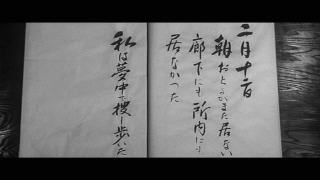 二月十二日
朝おとうがまた居ない
廊下にも所内にも
居なかった
私は夢中で捜し歩いた